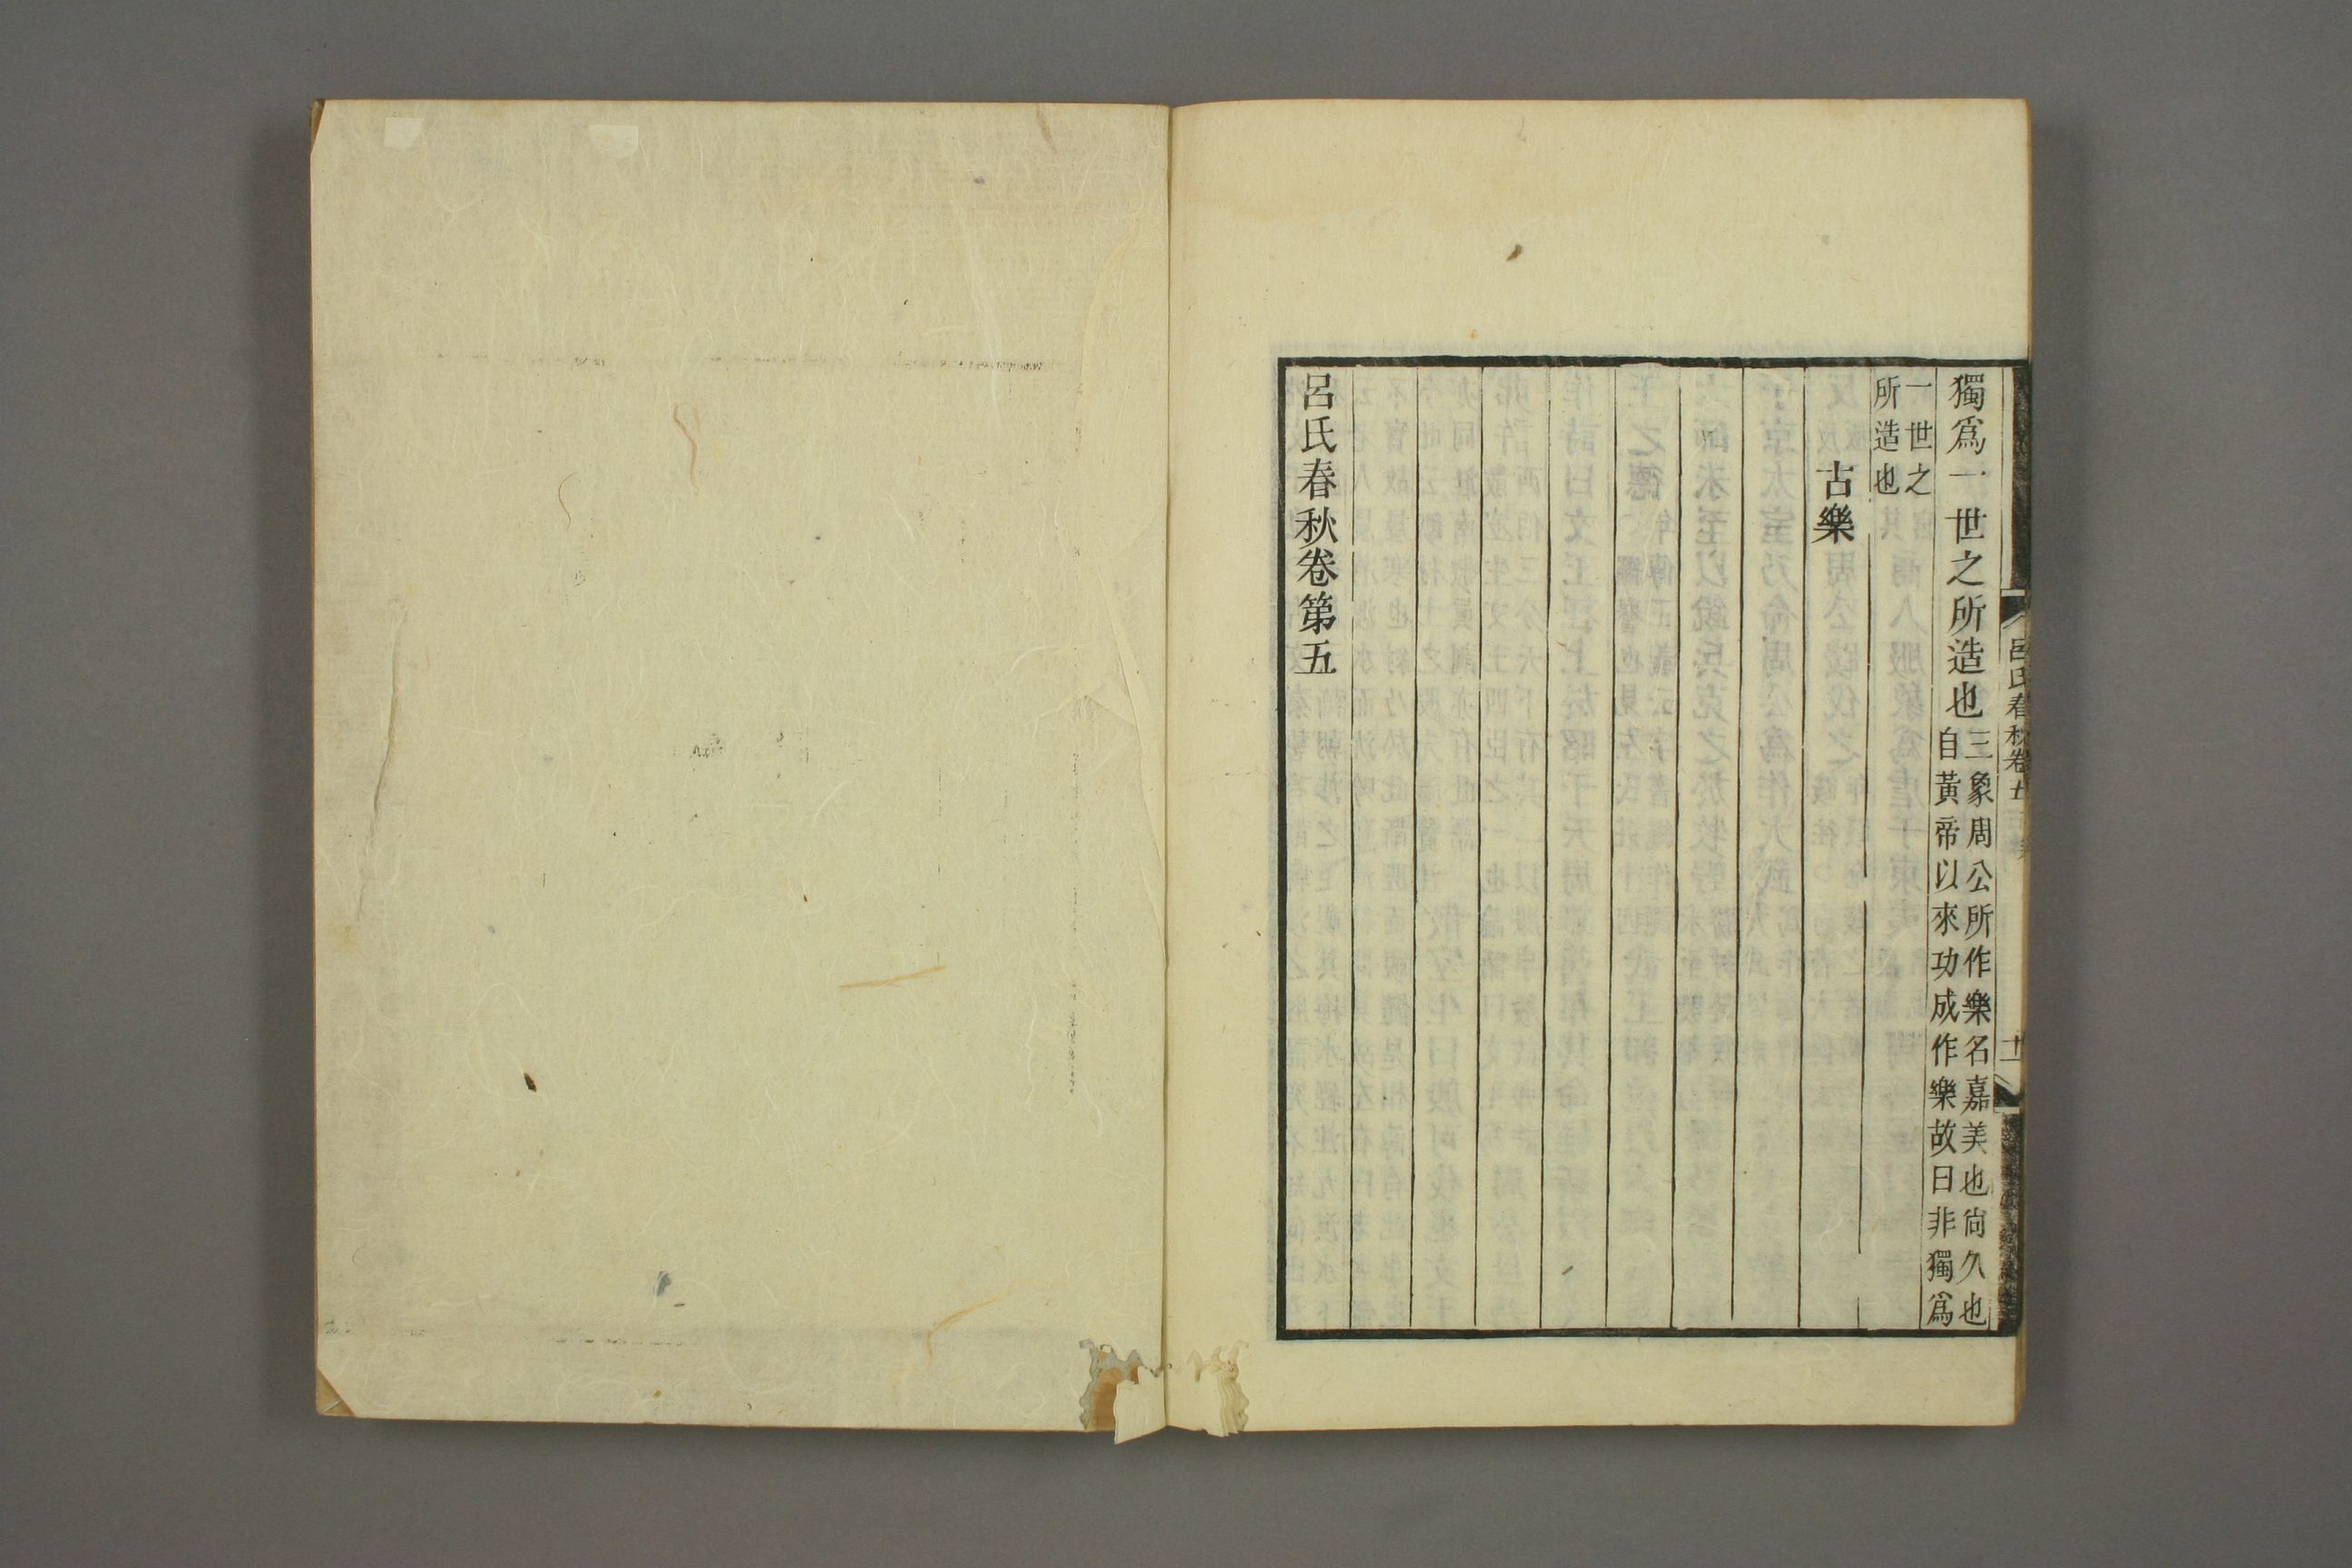 獨爲一世之所造也三象周公所作樂名嘉美也尙久也
自黃帝以來功成作樂故曰非獨爲
一世之
所造也
古樂
呂氏春秋卷第五
呂氏春秋卷五
十一